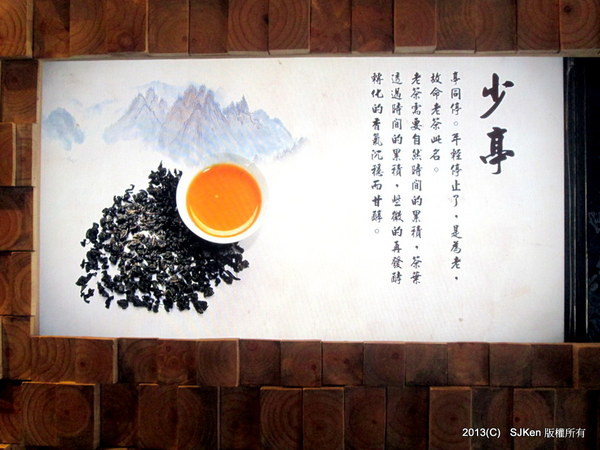 少亭
亭同停。年輕停止了，是為老，
故命老茶此名。
老茶需要自然時間的累積，茶葉
透過時間的累積，些微的再發酵
轉化的香氣沉穩而甘醇。
2013(C) SJKen 版權所有